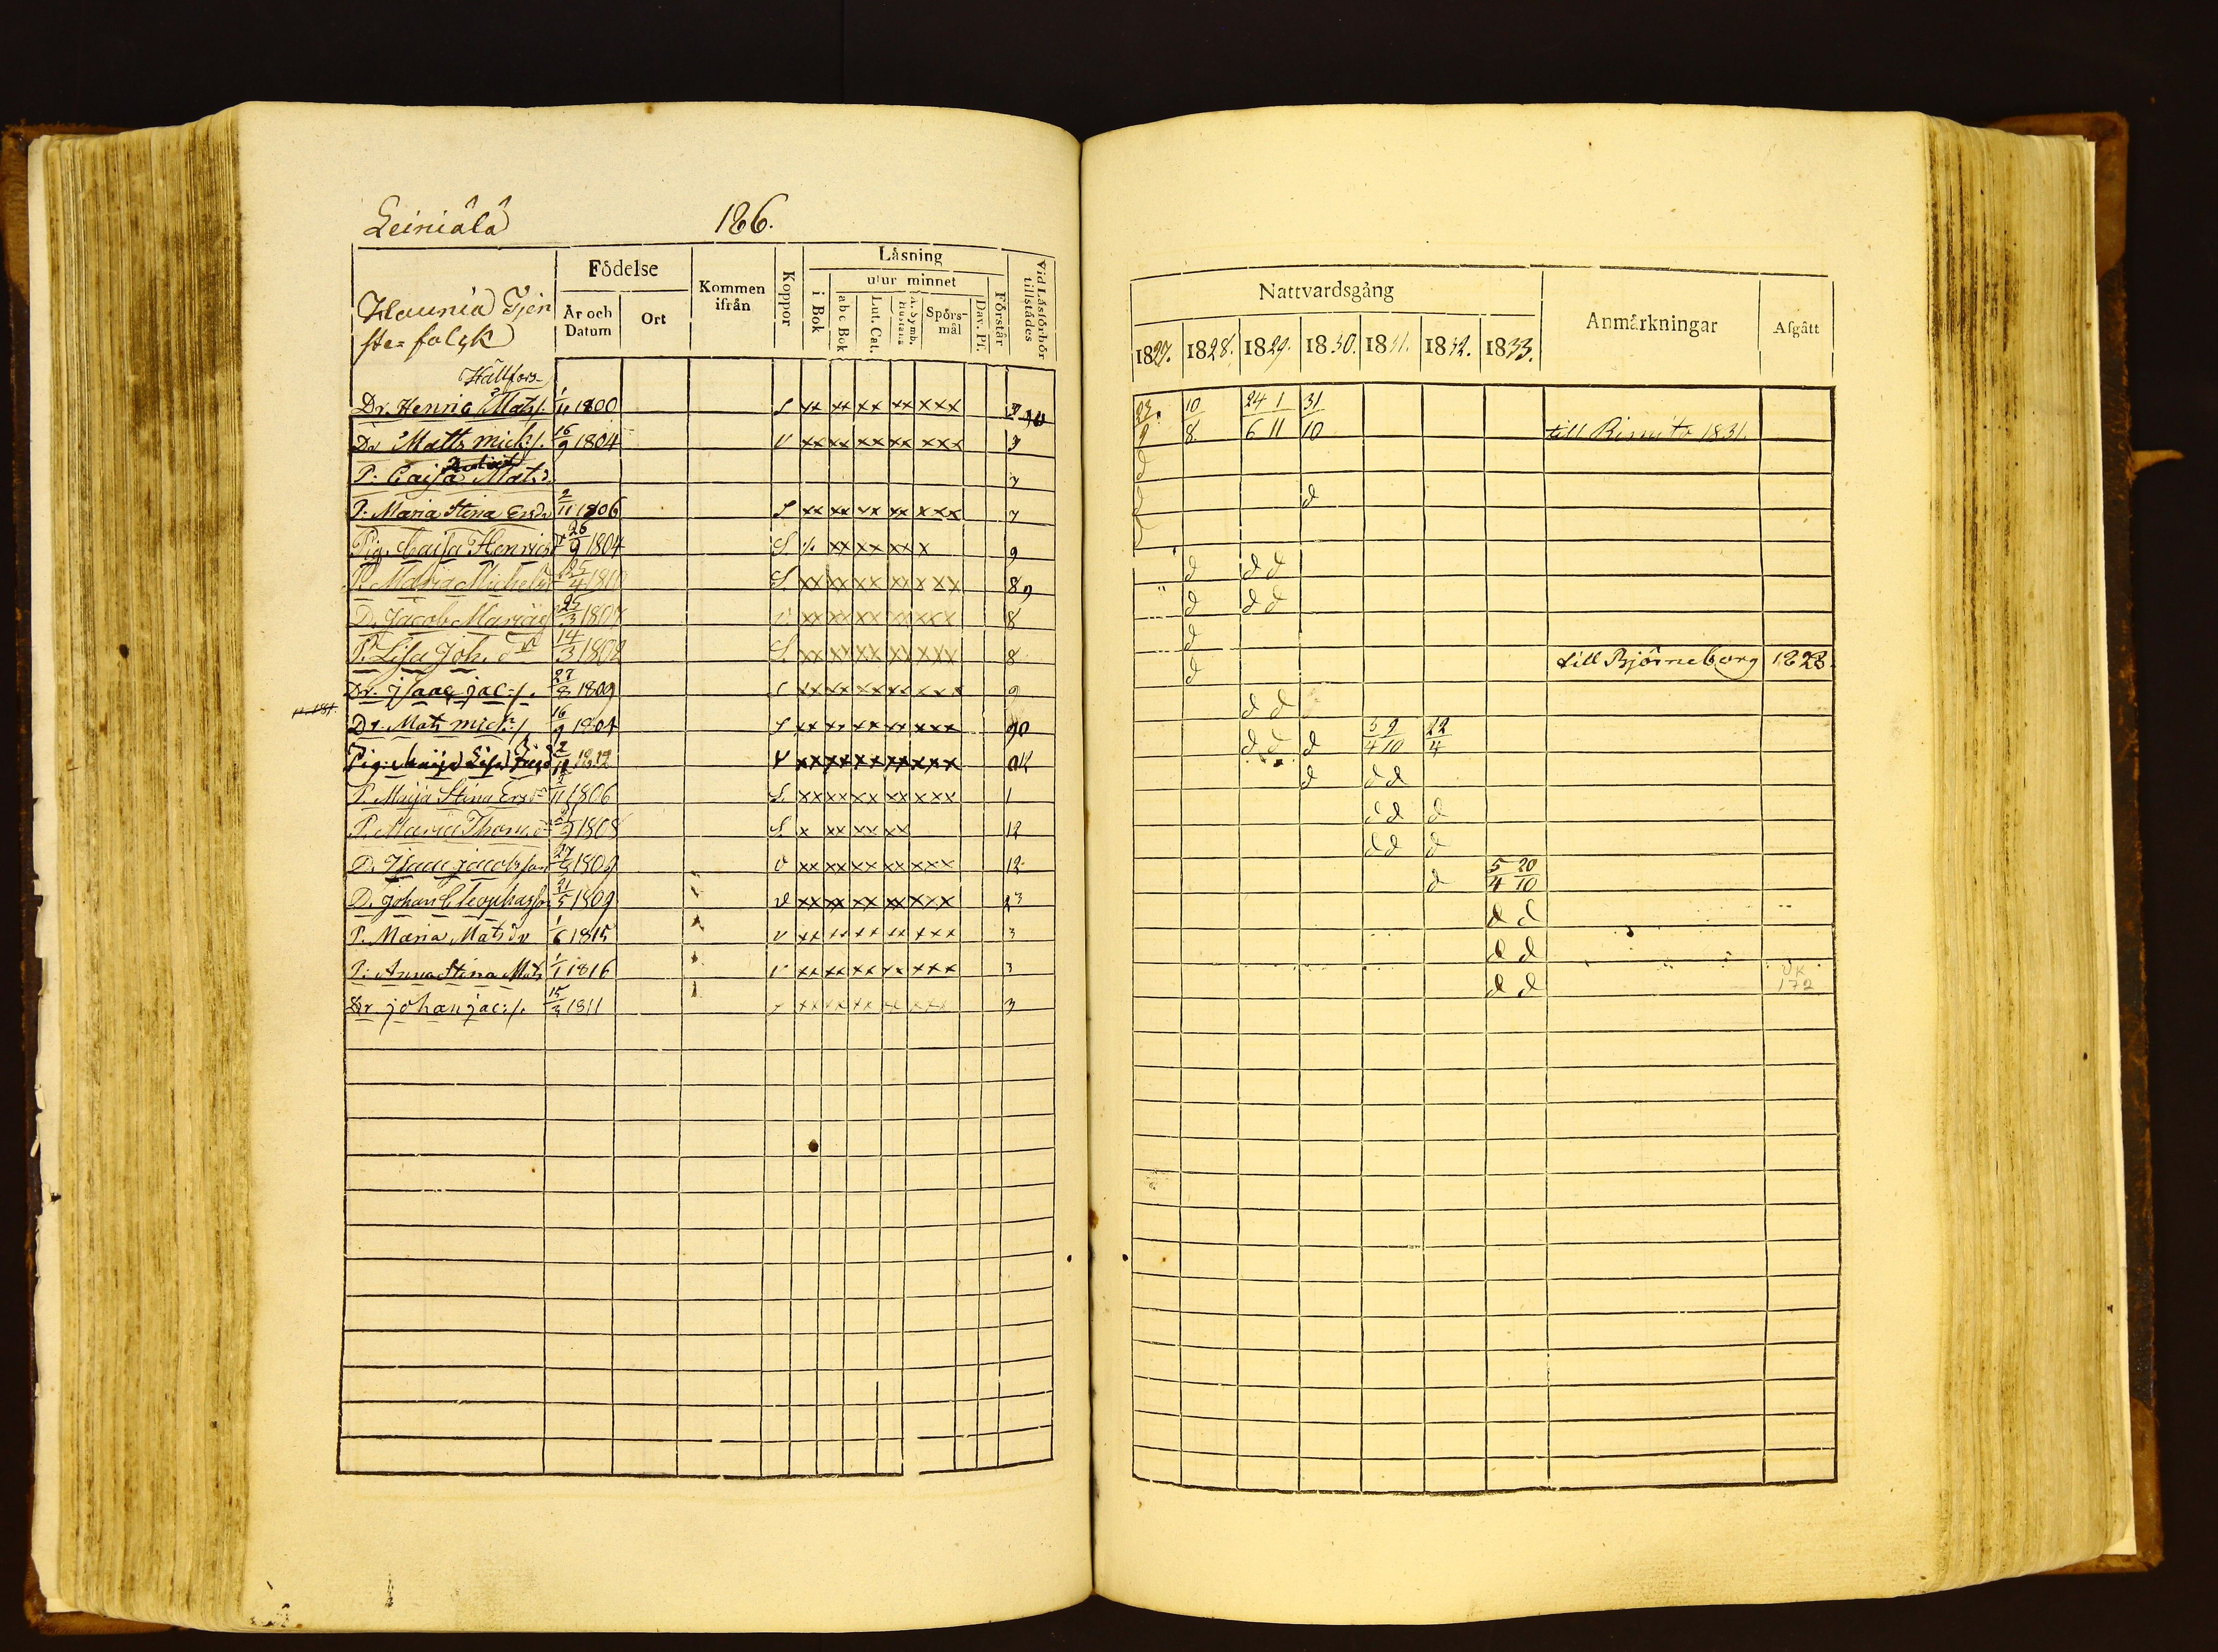 Leiniälä 186.
Haunia Tjen
ste=folck
Födelse
År och Datum
Ort
Kommen ifrån
Koppor
Läsning
i Bok
utur minnet
abc Bok
Lut. Cat.
A. Symb.
Hustafla
Spörs-mål
Dav. Ps.
Förstår
Vid Läsförhör tillstådes
Hällfors
Dr. Henric Mats s. 1/11 1800 s xx xx xx xx xxx
Dr Matts mich: s. 16/9 1804 v xx xx xx xx xxx 7
P: Caisa Mats d 7
P. Maria Stina Ersdr 2/11 1806 s xx xx xx xx xxx 7
Pig. Caisa Henricsdr 26/9 1804 S. xx xx xx x 9
P. Maria Michelsd 25/4 1810 S. xx xx xx xx xxx 8 9
D. Jacob Mariæ s 25/3 1807 v xx xx xx xx xxx 8
P. Lisa Joh. dr 14/3 1802 S. xx xx xx xx xxx 8
Dr. Isaac jac: s. 27/8 1809 xx xx xx xx xxx 9
Dr. Mats mich: s. 16/9 1804 s xx xx xx xx xxx 90
Pig: Maija Lisa 1812 v xx xx xx xx xxx
P. Maija Stina Ersdr 2/11 1806 S. xx xx xx xx xxx 1
P. Maria Thom. d 1808 S. x xx xx xx 12
D. Isaac Jacobsson 27/8 1809 v xx xx xx xx xxx 12
D. Johan Cleophas s 21/5 1809 v xx xx xx xx xxx 23
P. Maria Mats dr 1/6 1815 v xx xx xx xx xxx 3
P: Anna Stina Mats 1/1 1816 v xx xx xx xx xxx 3
Dr. johan jac: s. 15/3 1811 v xx xx xx xx xxx 3
Nattvardsgång
1827. 1828. 1829. 1830. 1831. 1832. 1833.
Anmärkningar
Afgått
23/9 10/8 24/6 1/11 31/10
till Rimito 1831.
d
d d
d
d d d
d d d
d
d till Björneborg 1828.
d d
d d d 3/4 9/10 22/4
d d d
d d d
d d d
d 5/4 20/10
d d
d d
d d
172